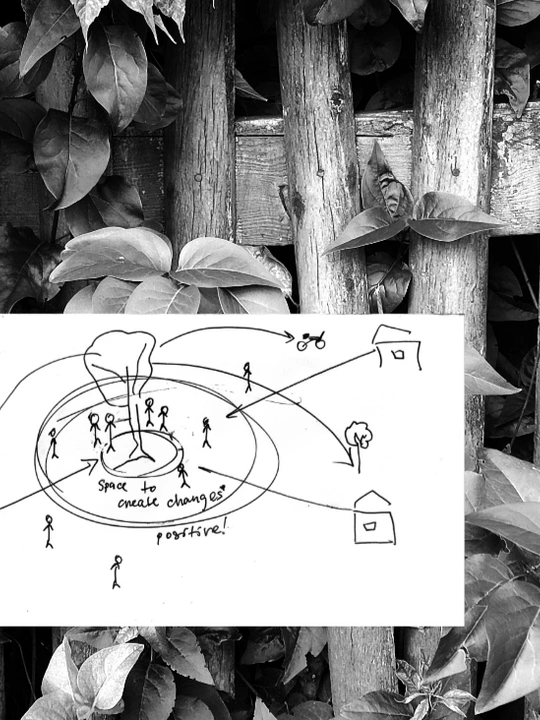 space to
create changes*
positive!